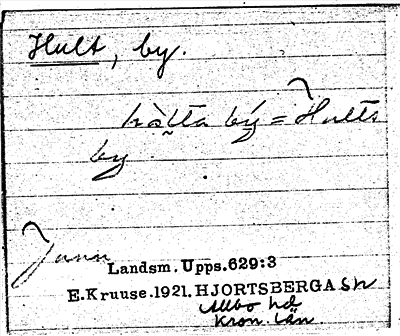 Hult, by.
hὰl̬ta by = Hults
by
Landsm. Upps. 629:3
E.Kruuse.1921. HJORTSBERGA Sn
Allbo hd
Kron. län.